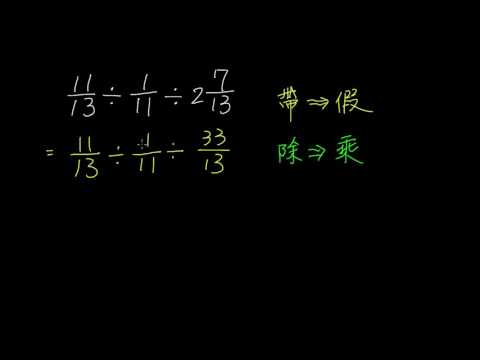 11/13 ÷ 1/11 ÷ 2 7/13 帶⇒假
= 11/13 ÷ 1/11 ÷ 33/13 除⇒乘